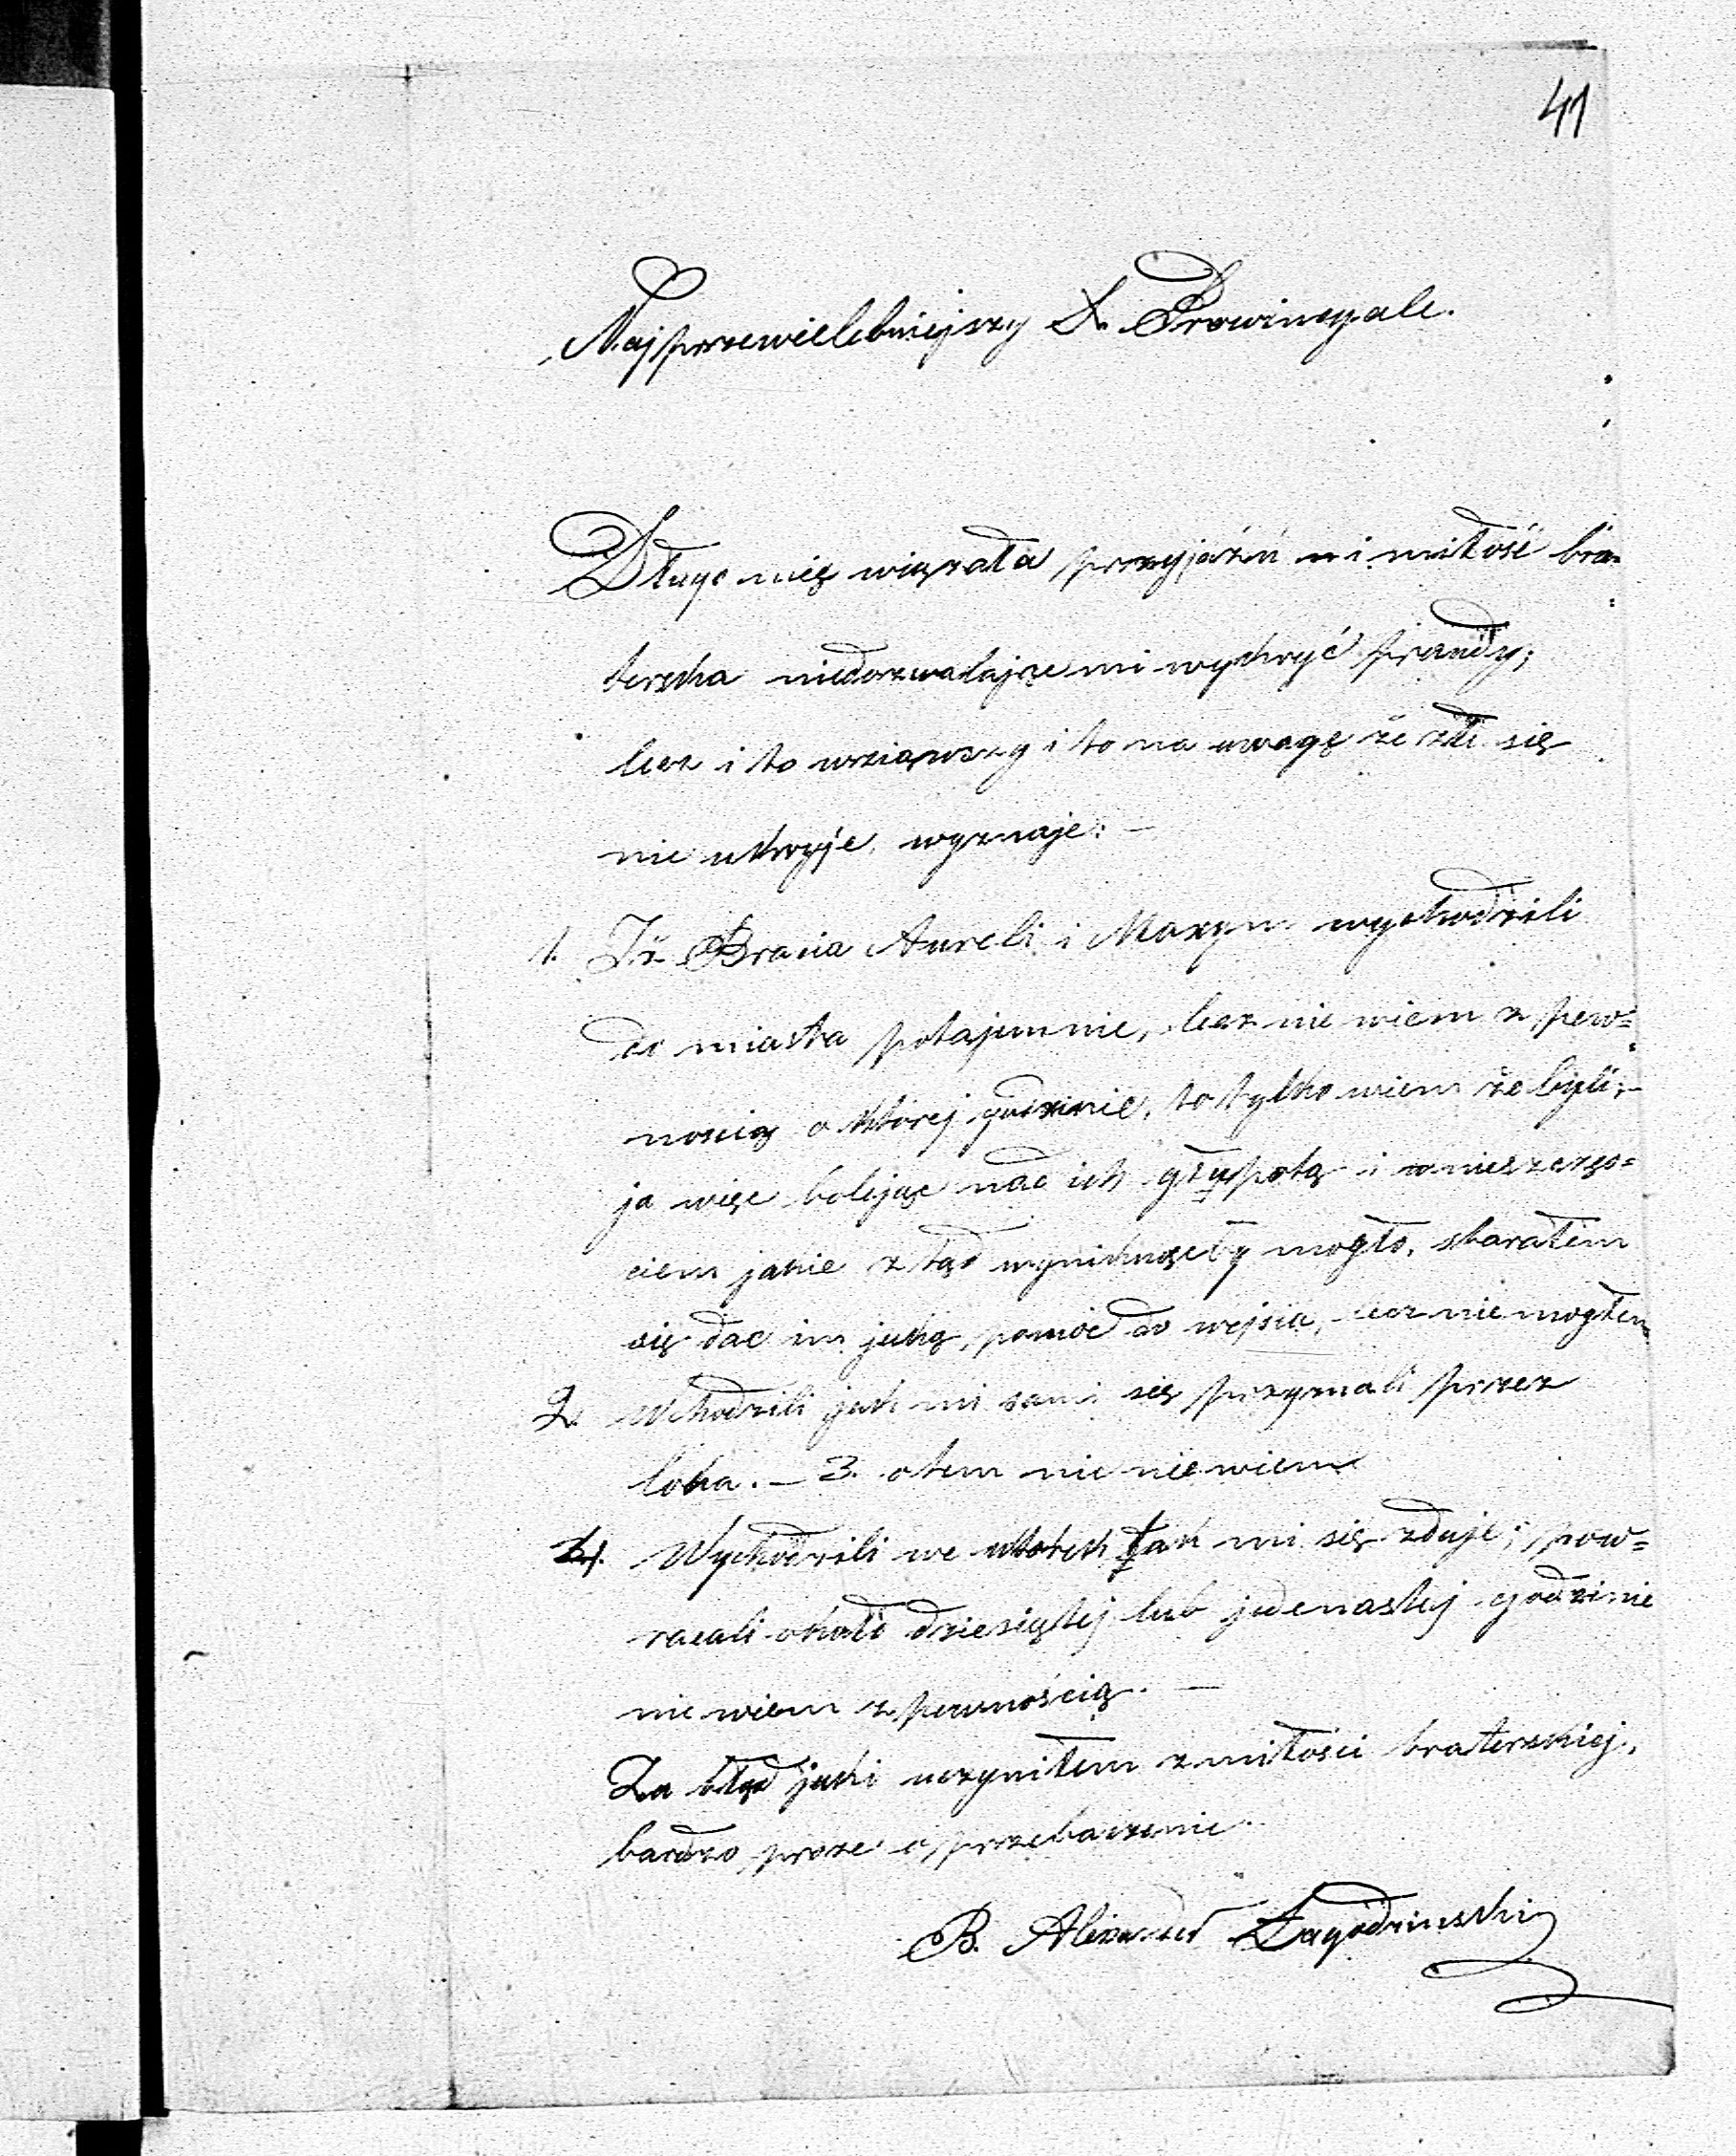 41
Najprzewielebniejszy X. Prowincyale.
Długo mię wiązała przyjaźń i miłość bra=
terska niedozwalając mi wykryć prawdy;
lecz i to wziąwszy i to na uwagę że złe się
nie ukryje, wyznaje: —
1. Iż Bracia Aureli i Maxym wychodzili
do miasta potajemnie, lecz nie wiem z pew=
nością o której godzinie, to tylko wiem że byli; —
ja więc bolejąc nad ich głupotą i nieszczęś=
ciem jakie z tąd wyniknąćby mogło, starałem
się dać im jaką pomóc do wejścia, lecz nie mogłem
2. Wchodzili jak mi sami się przyznali przez
loha. — 3. o tem nic nie wiem
4. Wychodzili we wtorek jak mi się zdaje; pow=
racali około dziesiątej lub jedenastej godzinie
nie wiem z pewnością. —
Za błąd jaki uczyniłem z miłości braterskiej,
bardzo prosze o przebaczenie.
B. Alexander Zagodzinski